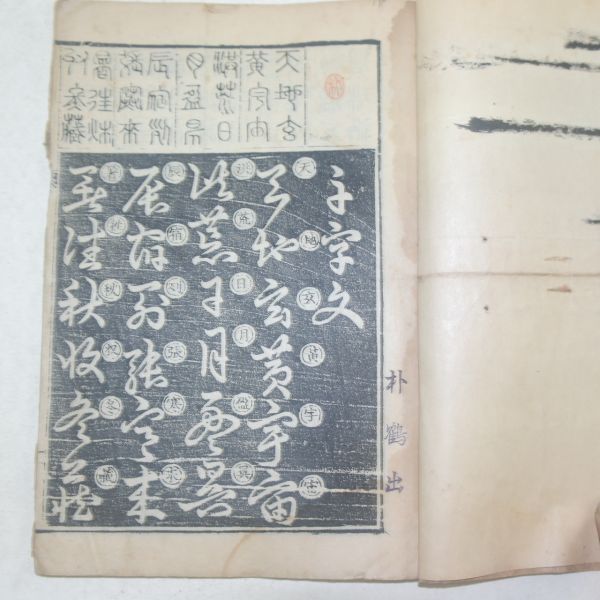 天地玄
黃宇宙
洪荒日
月盈昃
辰宿列
張寒來
暑往秋
收冬藏
千字文
天地玄黃宇宙
天地玄黃宇宙
洪荒日月盈昃
洪荒日月盈昃
辰宿列張寒來
辰宿列張寒來
暑往秋收冬藏
暑往秋收冬藏
朴鶴出